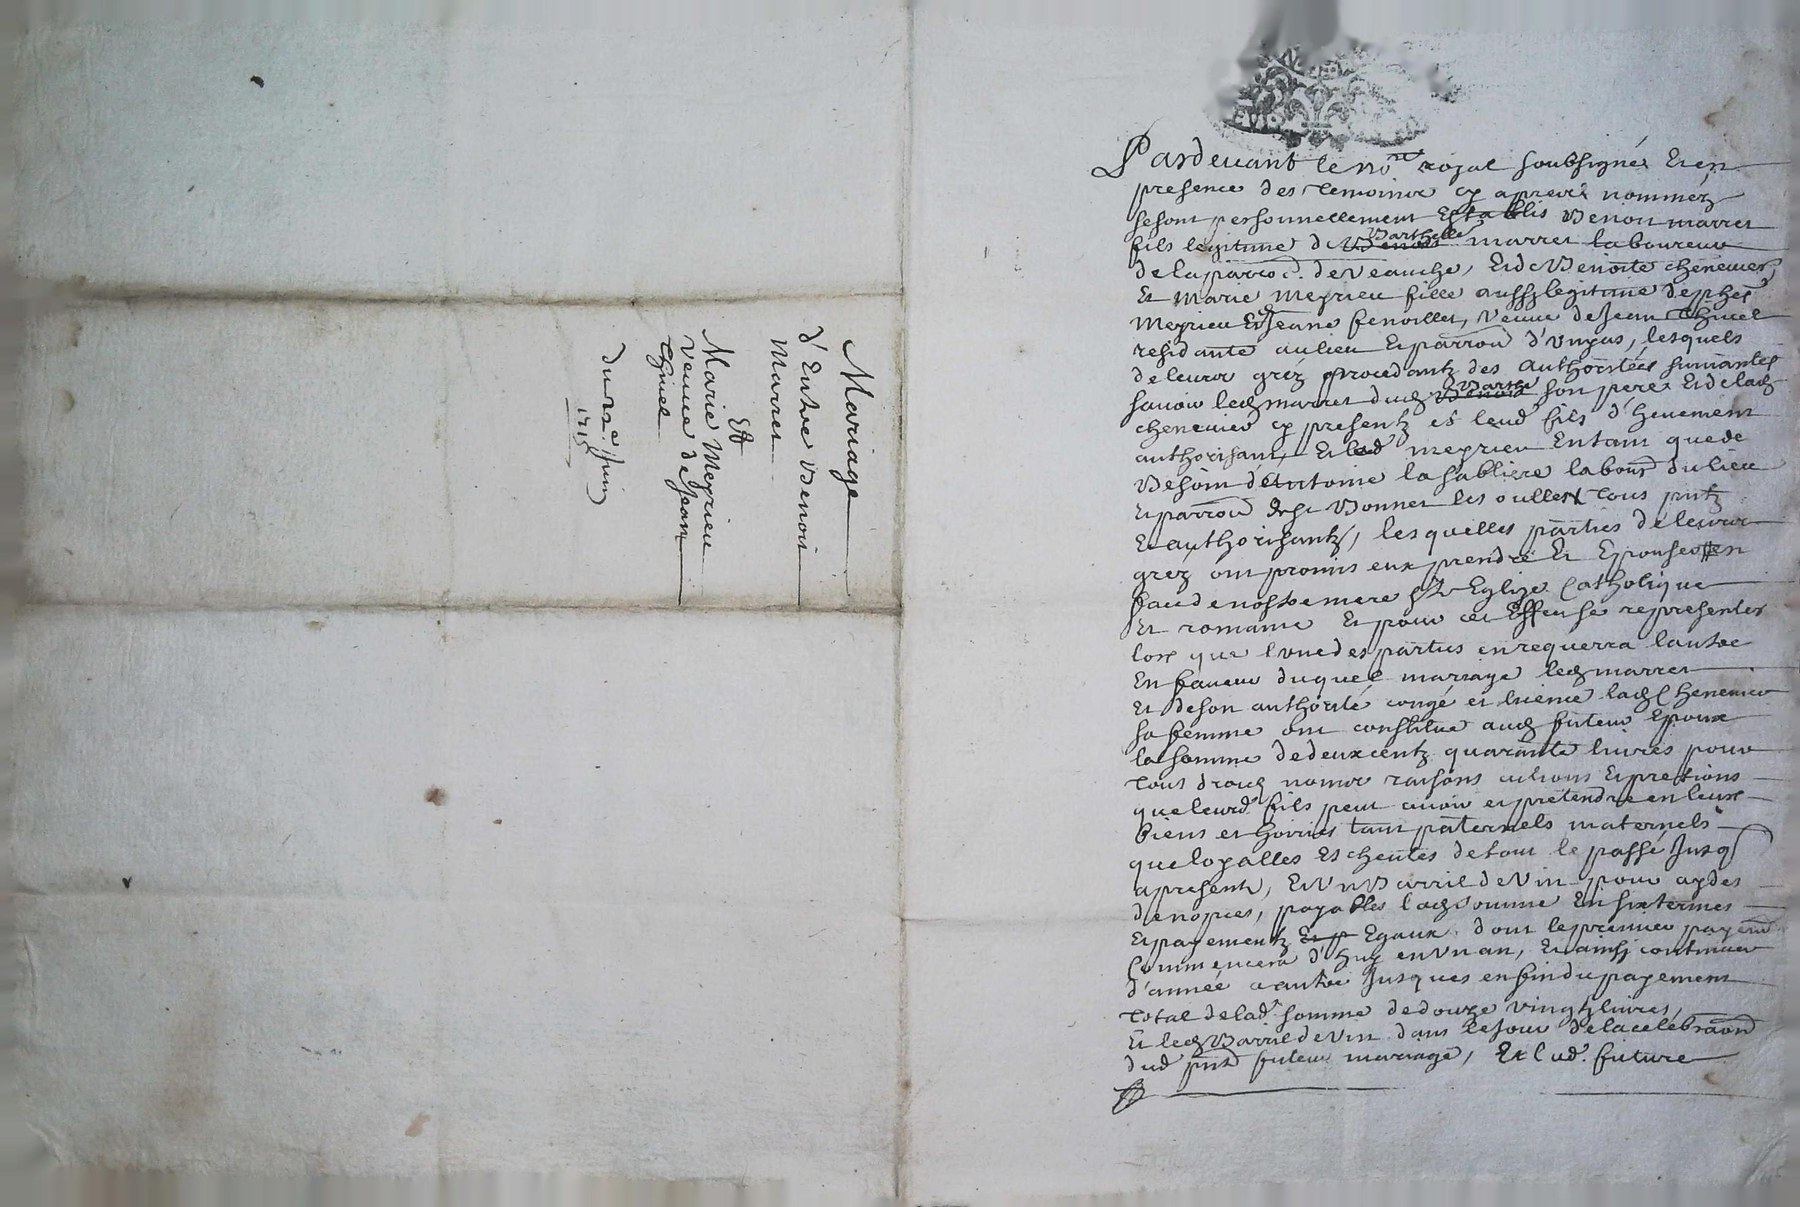 Mariage
d'Entre Benoit
Marret
Et
Marie Meyrieu
veuve de Jean
Thivel
du 22e Juin
1715
Pardevant le nore royal soubsigné Et en
presence des temoins cy apres nomméz
se sont personnellement Establis Benoit marret
fils legitime de Benoit Barthelle marret laboureur
de la parroe. de Veauche, Et de Benoite chenevier,
Et Marie meyrieu fille aussy legitime de phet
meyrieu Et Jeane fenoillet, veuve de Jean Thivel
residante au lieu Et parroe d'unyas, lesquels
de leurs gréz procedantz des authoritées suivantes
savoir ledt marret dudt Benoit Barthe son pere Et de ladt
chenevier cy presentz Et leurd fils d'huement
authorisant, Et lad meyrieu Entant que de
Besoin d'Antoine la sabliere labour du lieu
Et parroe de st Bonnet les oulles tous pntz
Et authorisantz, lesquelles parties de leurs
gréz ont promis eux prendre Et Epouser en
face de nostre mere ste Eglize Catholique
Et romaine Et pour cet Effet se representer
lors que l'une des parties en requerra l'autre
En faveur duquel mariage ledt marret
Et de son authorité congé et licience ladt Chenevier
sa femme ont constitué audt futeur Epoux
la somme de deux centz quarante livres pour
tous droits noms raisons actions Et pretions
que leurd fils peut avoir et pretendre en leurs
biens et hoiries tant paternels maternels
que loyalles Escheutes de tout le passé Jusq
a present, Et Un Barril de Vin pour aydes
de nopces, payables ladt somme En six termes
Et payementz Et p Egaux dont le premier payemt
Commencera d'huy en Un an, Et ainsy continuer
d'année a autre Jusques en fin du payement
total de lad. somme de douze vingtz livres,
Et ledt Barril de Vin dans le Jour de la celebraon
dud pnt futeur mariage, Et lad. future